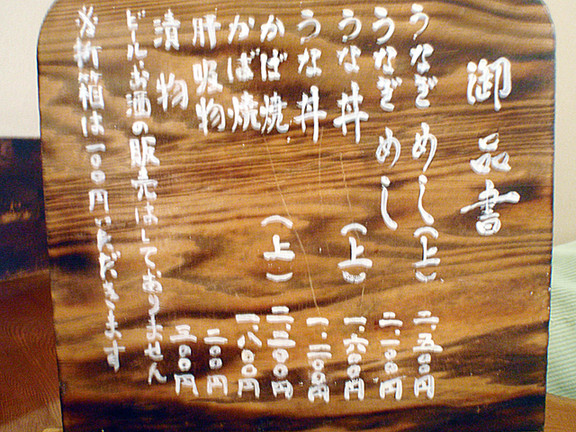 御品書
うなぎめし(上) 二、五〇〇円
うなぎめし 二、一〇〇円
うな丼(上) 一、六〇〇円
うな丼 一、二〇〇円
かば焼(上) 二、二〇〇円
かば焼 一、八〇〇円
肝吸物 二〇〇円
漬物 三〇〇円
ビール・お酒の販売はしておりません
折箱は一〇〇円いただきます